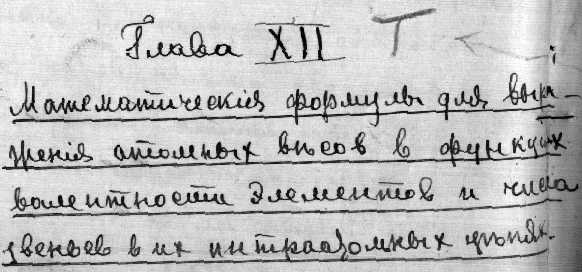 Глава XII Т
Математическія формулы для выра-
женія атомныхъ вѣсовъ в функціяхъ
валентности элементов и числа
звеньев в их интраатомных цѣпях.